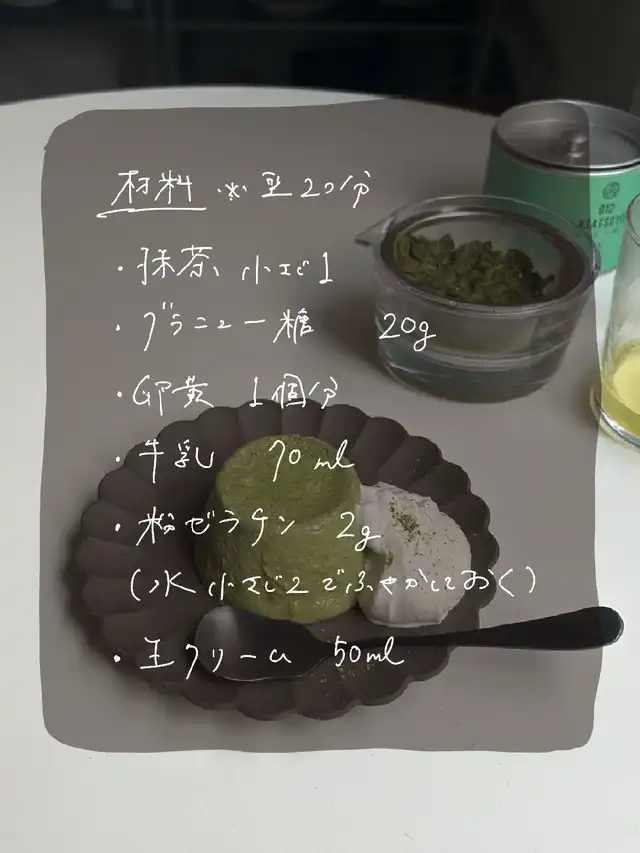 材料 ※型2コ分
・抹茶 小さじ1
・グラニュー糖 20g
・卵黄 1個分
・牛乳 70ml
・粉ゼラチン 2g
(水 小さじ2でふやかしておく)
・生クリーム 50ml